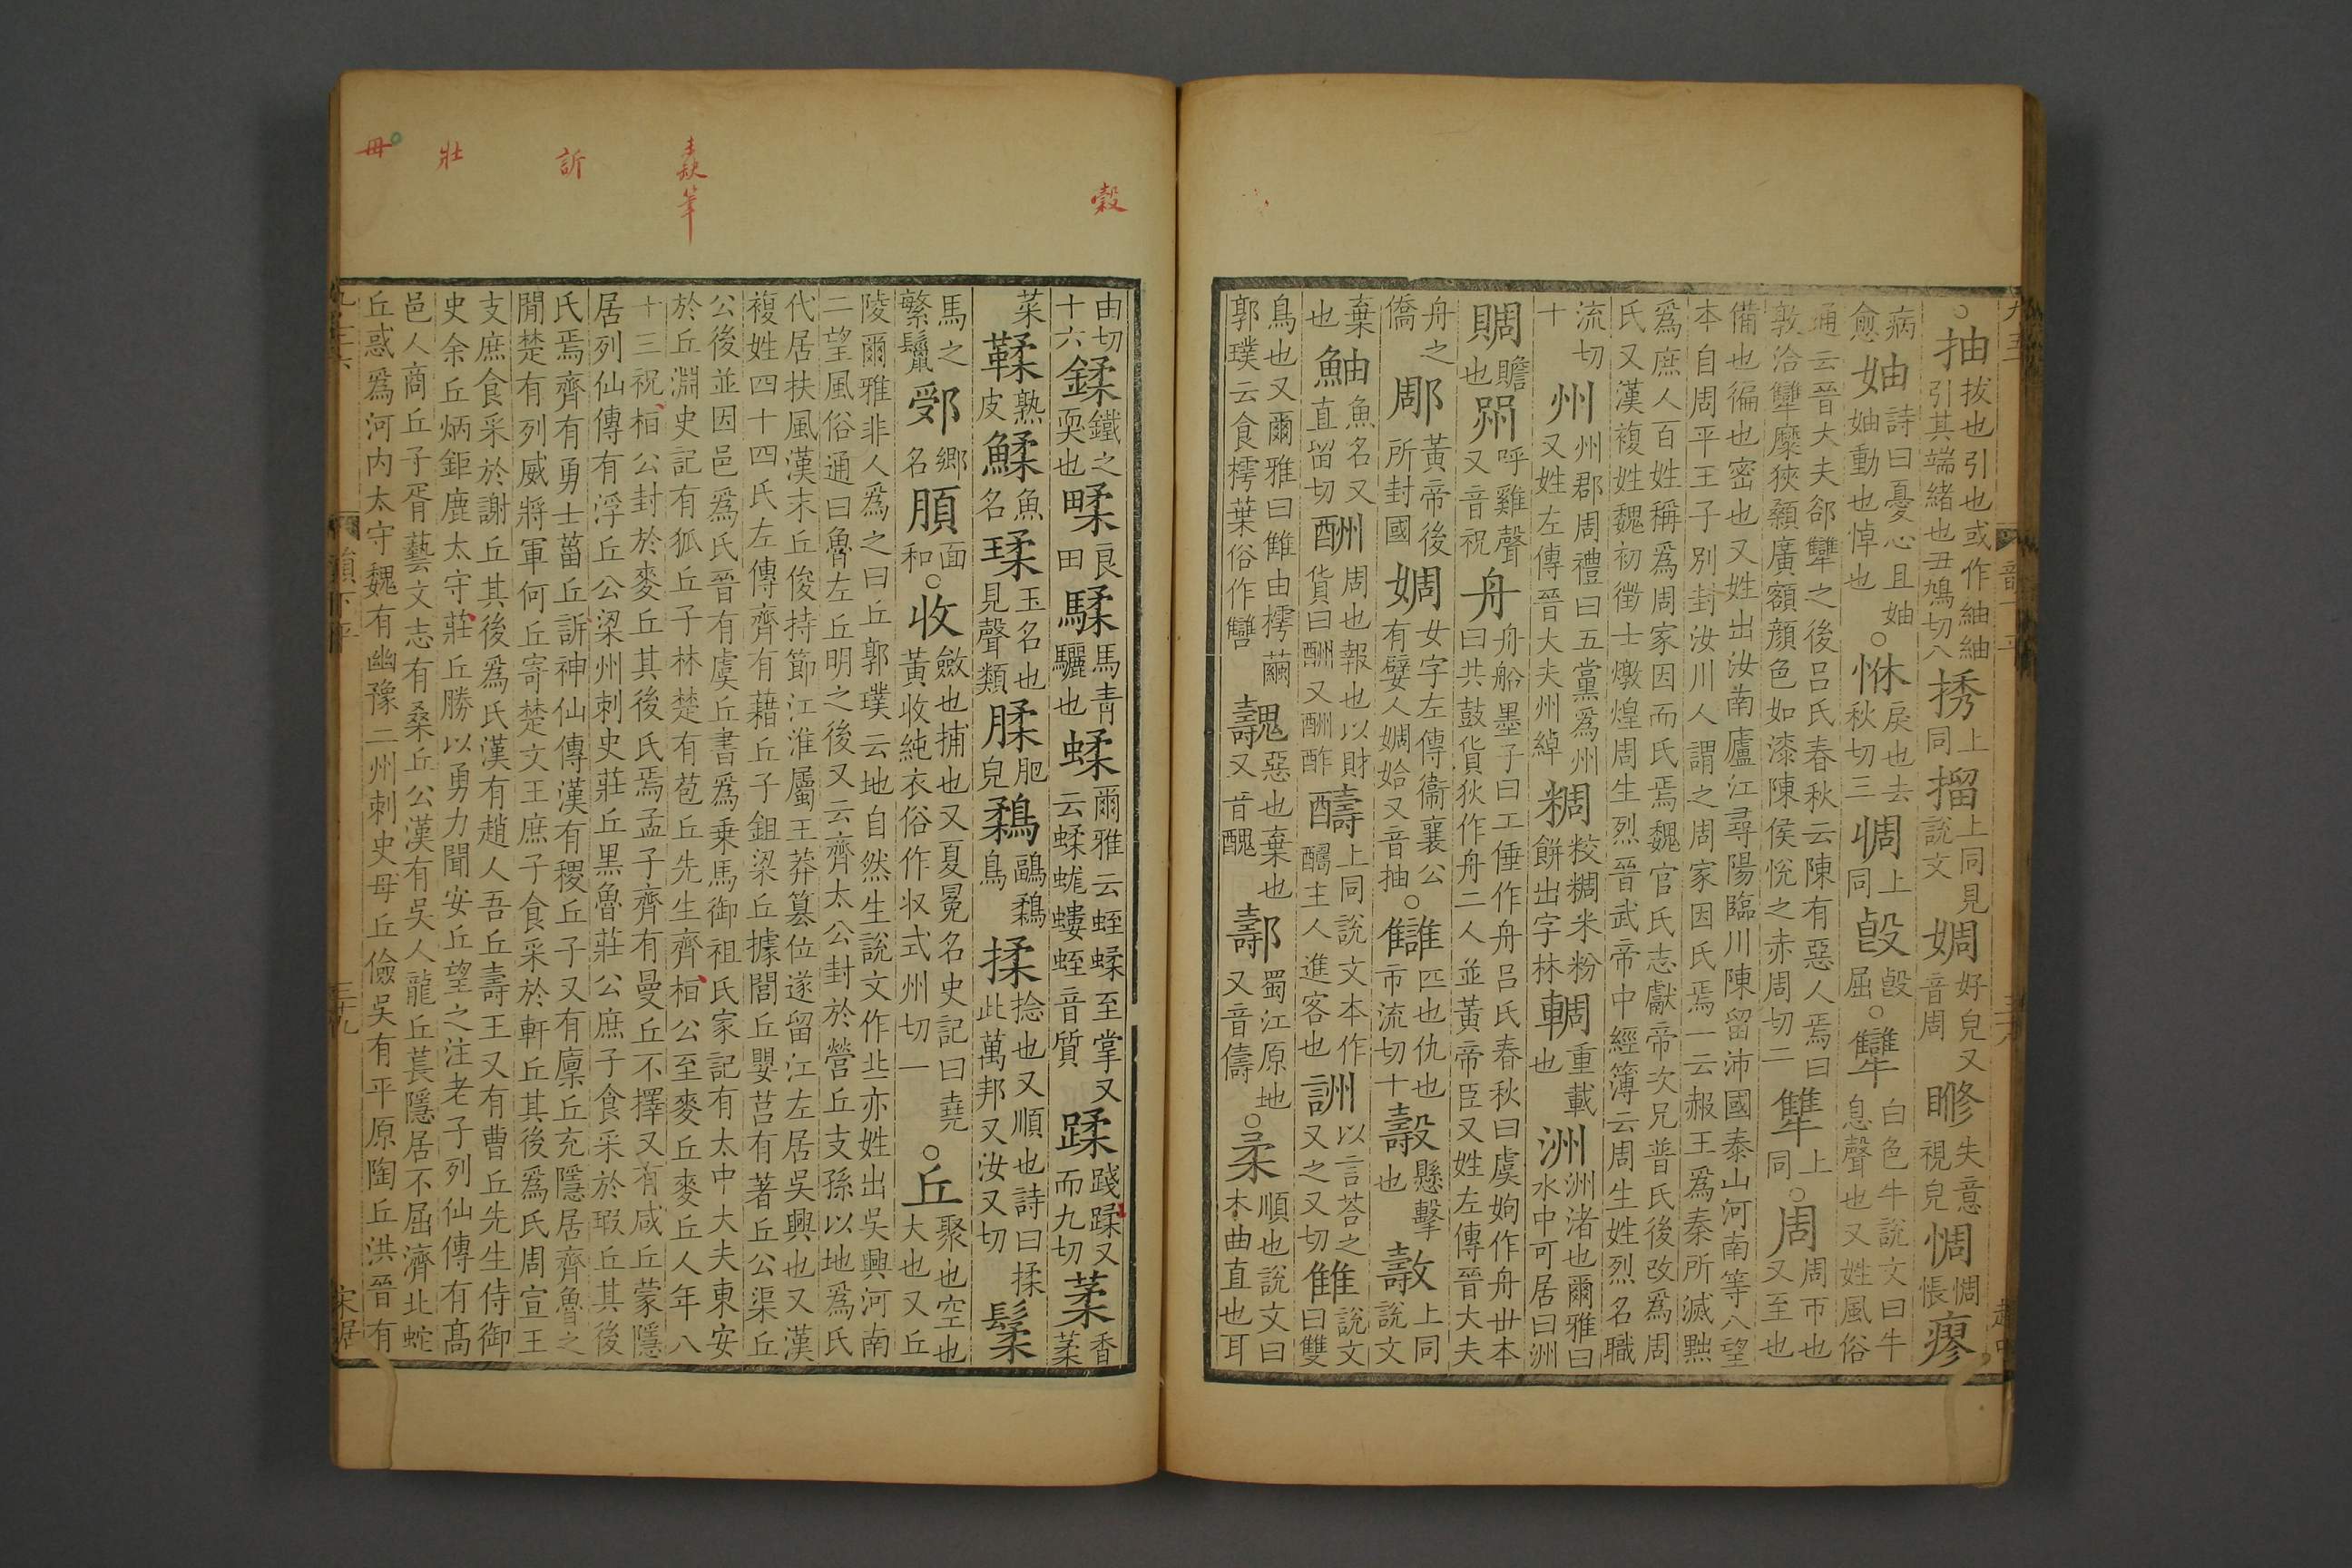 ○抽拔也引也或作紬紬引其端緒也丑鳩切八㨨上同㩅上同見說文婤好皃又音周䀺失意視皃惆惆悵瘳
病愈妯詩曰憂心且妯妯動也悼也○恘戾也去秋切三惆上同㱿㱿屈○犫白色牛說文曰牛息聲也又姓風俗
通云晉大夫郤犫之後呂氏春秋云陳有惡人焉曰敦洽犫糜狹顙廣額顏色如漆陳侯悅之赤周切二犨上同○周周帀也又至也
備也徧也密也又姓出汝南廬江尋陽臨川陳留沛國泰山河南等八望本自周平王子別封汝川人謂之周家因氏焉一云赧王爲秦所滅黜
爲庶人百姓稱爲周家因而氏焉魏官氏志獻帝次兄普氏後改爲周氏又漢複姓魏初徵士燉煌周生烈晉武帝中經簿云周生姓烈名職
流切十州州郡周禮曰五黨爲州又姓左傳晉大夫州綽粷粷米粉餅出字林輖重載也洲洲渚也爾雅曰水中可居曰洲
賙贍也喌呼雞聲又音祝舟舟船墨子曰工倕作舟呂氏春秋曰虞姁作舟世本曰共鼓貨狄作舟二人並黃帝臣又姓左傳晉大夫
舟之僑郮黃帝後所封國婤女字左傳衞襄公有嬖人婤姶又音抽○讎匹也仇也市流切十㲽懸擊也敾上同說文
棄也鮋魚名又直留切酬周也報也以財貨曰酬又酬酢醻上同說文本作醻主人進客也詶以言荅之又之又切雔說文曰雙
鳥也又爾雅曰雔由樗繭郭璞云食樗葉俗作讐魗惡也棄也又音醜䣝蜀江原地又音儔○柔順也說文曰木曲直也耳
由切十六鍒鐵之耎也䰆良田騥馬青驪也蝚爾雅云蛭蝚至掌又云蝚蛖螻蛭音質蹂踐蹂又而九切葇香葇
菜鞣熟皮鰇魚名瑈玉名也見聲類腬肥皃鶔鸓鶔鳥揉捻也又順也詩曰揉此萬邦又汝又切鬏
馬之繁鬣䣩鄉名脜面和○收斂也捕也又夏冕名史記曰堯黃收純衣俗作収式州切一○丘聚也空也大也又丘
陵爾雅非人爲之曰丘郭璞云地自然生說文作丠亦姓出吳興河南二望風俗通曰魯左丘明之後又云齊太公封於營丘支孫以地爲氏
代居扶風漢末丘俊持節江淮屬王莽篡位遂留江左居吳興也又漢複姓四十四氏左傳齊有藉丘子鉏梁丘據閭丘嬰莒有著丘公渠丘
公後並因邑爲氏晉有虞丘書爲乗馬御祖氏家記有太中大夫東安於丘淵史記有狐丘子林楚有苞丘先生齊桓公至麥丘麥丘人年八
十三祝桓公封於麥丘其後氏焉孟子齊有曼丘不擇又有咸丘蒙隱居列仙傳有浮丘公梁州刺史莊丘黑魯莊公庶子食采於瑕丘其後
氏焉齊有勇士菑丘訢神仙傳漢有稷丘子又有廩丘充隱居齊魯之閒楚有列威將軍何丘寄楚文王庶子食采於軒丘其後爲氏周宣王
支庶食采於謝丘其後爲氏漢有趙人吾丘壽王又有曹丘先生侍御史余丘炳鉅鹿太守莊丘勝以勇力聞安丘望之注老子列仙傳有高
邑人商丘子胥藝文志有桑丘公漢有吳人龍丘萇隱居不屈濟北蛇丘惑爲河内太守魏有幽豫二州刺史毋丘儉吳有平原陶丘洪晉有
穀
訢
壯
毌